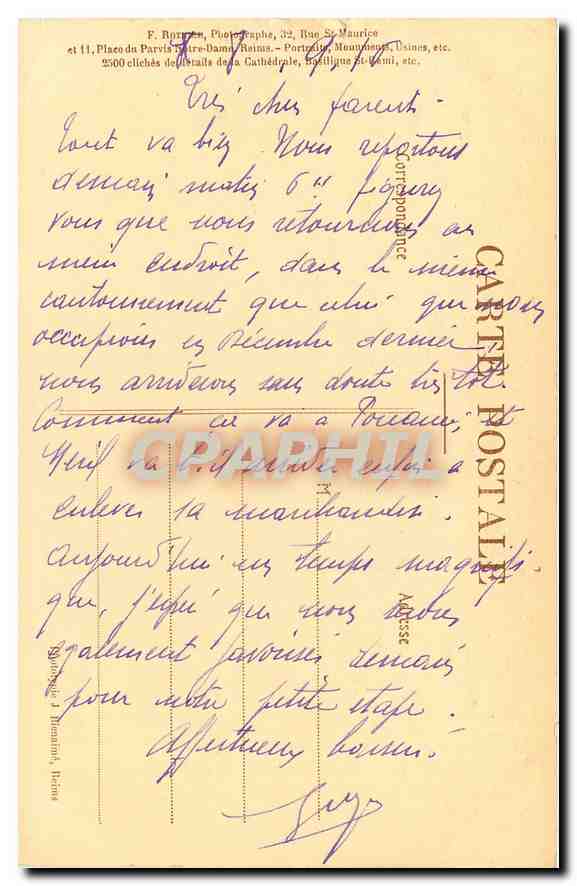 F. ROTHIER, Photographe, 32, Rue St-Maurice
et 11, Place du Parvis Notre-Dame, Reims. - Portraits, Monuments, Usines, etc.
2500 clichés de détails de la Cathédrale, Basilique St-Remi, etc.
Très chers parents.
Tout va bien. Nous repartons
demain matin 6 h figurez
vous que nous retournons au
même endroit, dans le même
cantonnement que celui que nous
occupions en Décembre dernier,
nous arriverons sans doute très tôt.
Comment ça va à et
va t-il enfin à
enlever sa marchandise.
Aujourd'hui un temps magnifi
que, j'espère que nous serons
également favorisés demain
pour notre petite étape.
Affectueux baisers.
Guy
Correspondance
CARTE POSTALE
Adresse
CPARAMA CARPHIL
Photographie J. Bienaimé, Reims